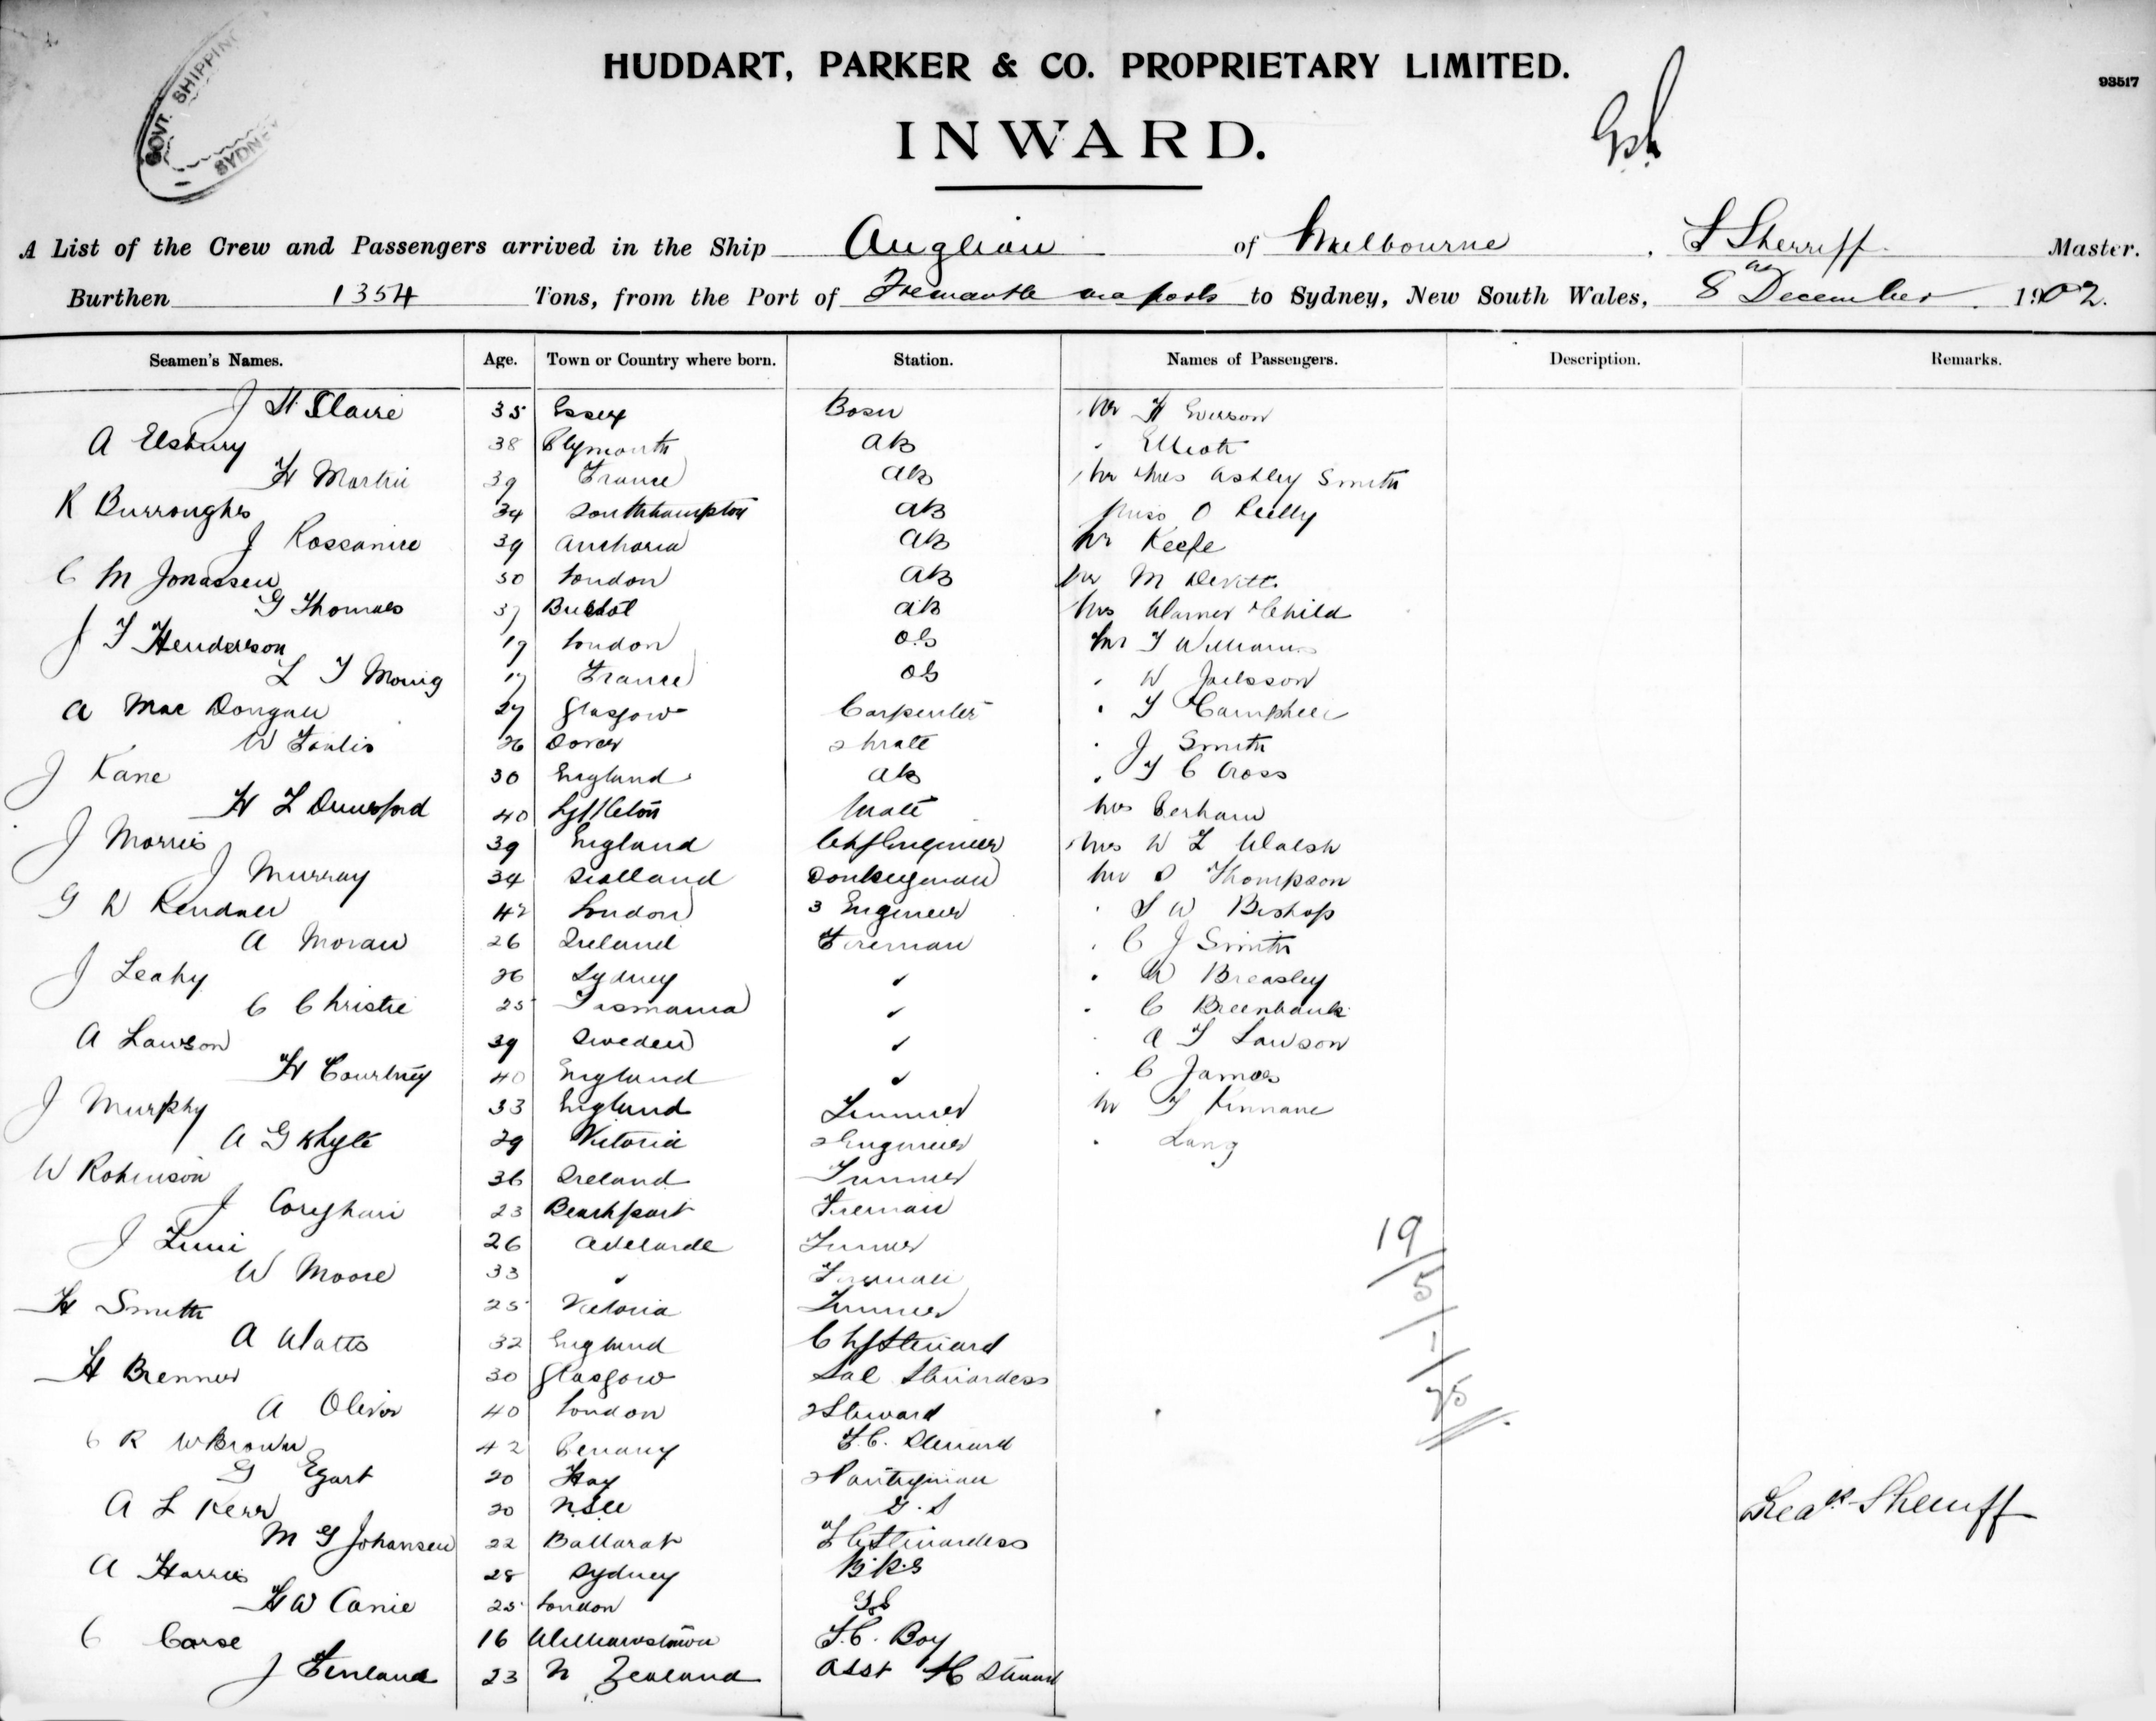 GOVT. SHIPPING
SYDNEY
HUDDART, PARKER & CO. PROPRIETARY LIMITED.
93517
INWARD.
A List of the Crew and Passengers arrived in the Ship Anglian of Melbourne, Sherriff Master.
Burthen 1354 Tons, from the Port of Fremantle via ports to Sydney, New South Wales, 8 December 1902.
Seamen's Names. Age. Town or Country where born. Station. Names of Passengers. Description. Remarks.
J H 35 Essex Bosn Mr H Everson
A Elsbury 38 Plymouth AB " Elliott
H Martin 39 France AB Mr Mrs Ashley Smith
R Burroughs 34 Southhampton AB Miss O Reilly
J 39 AB Mr Keefe
C M Jonassen 30 London AB Mr M Devitt
G Thomas 37 Bristol AB Mrs Warner & Child
J F Henderson 19 London OS Mr T Williams
L 17 France OS " W
A Mac Dongall 27 Glasgow Carpenter " T Campbell
W 26 Dover 2 Mate " J Smith
J Kane 30 England AB " T C Cross
H L Dunsford 40 Lyttleton Mate Mrs
J Morris 39 England Chf Engineer Mrs W L Walsh
J Murray 34 Scotland Donkeyman Mr Thompson
G R Kendall 42 London 3 Engineer " W Bishop
A Moran 26 Ireland Fireman " C J Smith
J Leahy 26 Sydney " " Breasley
C Christie 25 Tasmania " " C
A Lawson 39 Sweden " " A T Lawson
H Courtney 40 England " " C James
J Murphy 33 England Trimmer Mr T Kinnane
A G Whyte 29 Victoria 2 Engineer " Lang
W Robinson 36 Ireland Trimmer
J 23 Beachport Fireman
J 26 Adelaide Trimmer
W Moore 33 " Fireman
H Smith 25 Victoria Trimmer
A Watts 32 England Chf Steward
H Brenner 30 Glasgow Sal Stewardess
A Oliver 40 London 2 Steward
C R W Brown 42 F.C. Steward
G Egart 20 Hay 2 Pantryman
A L Kerr 20 NSW G.S
M G Johansen 22 Ballarat F C Stewardess
A Harris 28 Sydney
H W 25 London
C Carse 16 Williamstown F.C. Boy
J Fenland 23 N Zealand Asst Steward
19/5/-/25
Sherriff